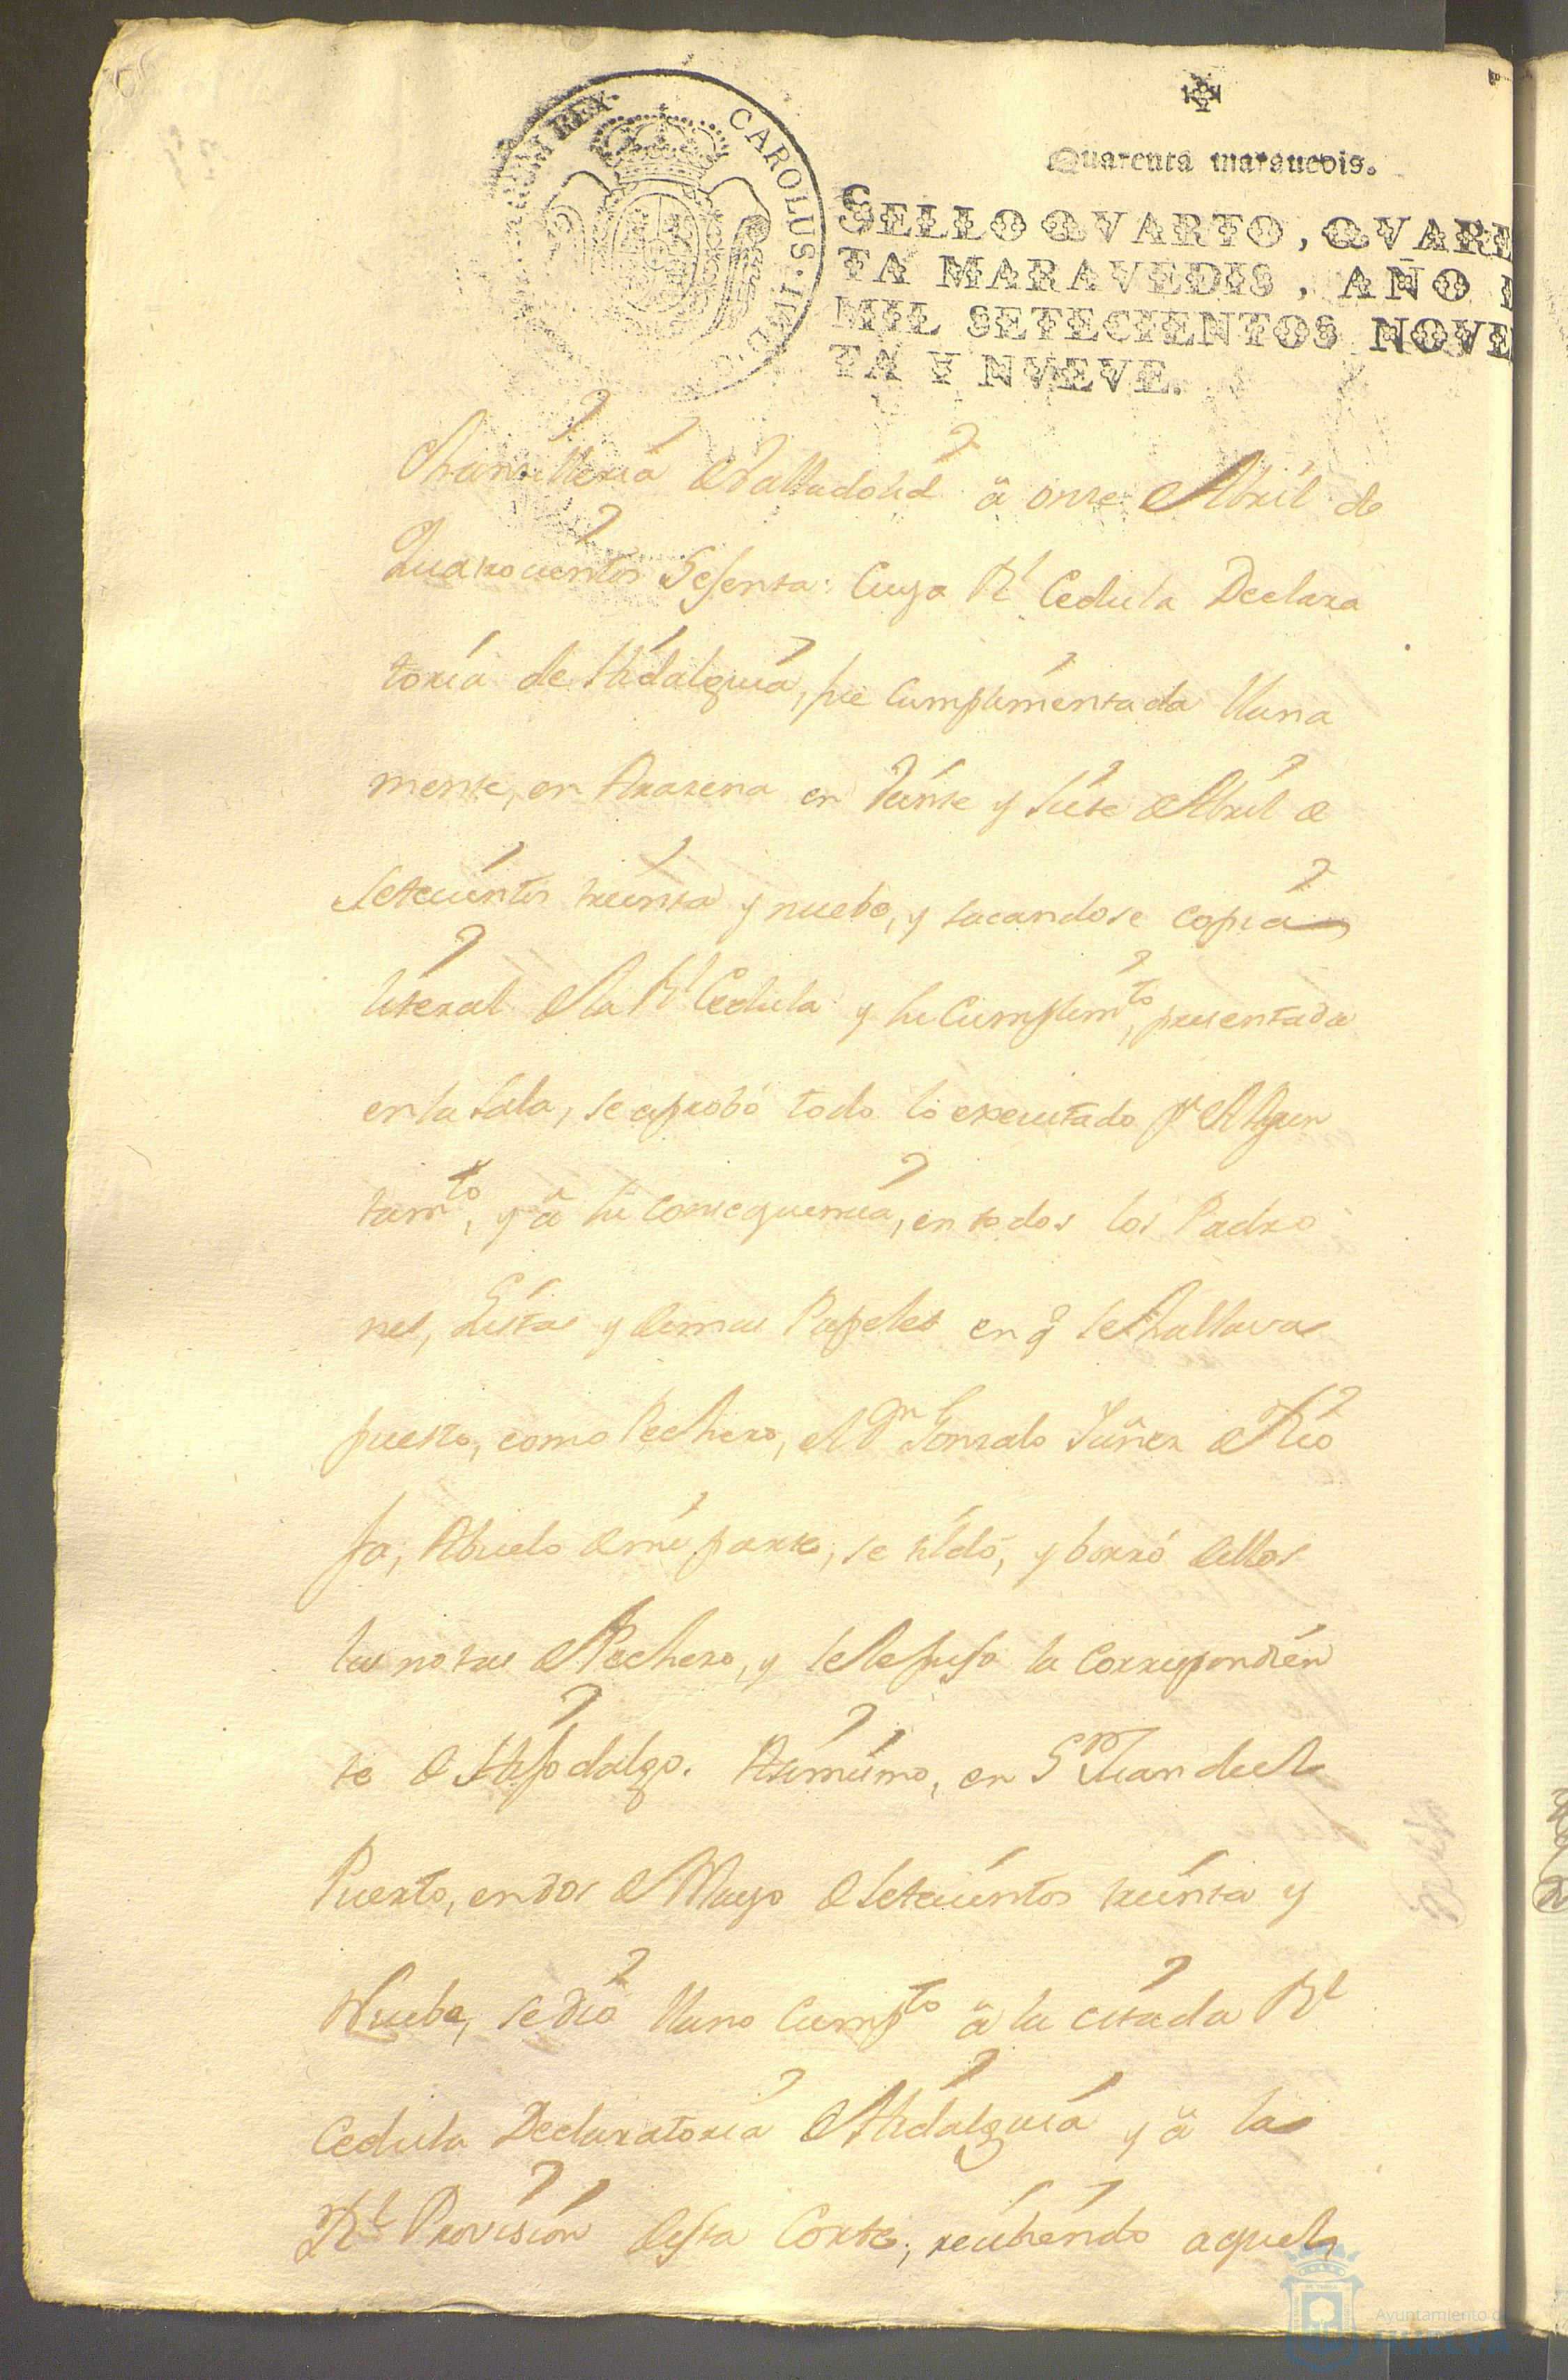 CAROLUS · IIII · D · G ·
REX ·
Quarenta maravedis.
SELLO QVARTO, QVARE
TA MARAVEDIS, AÑO
MIL SETECIENTOS NOVE
TA Y NVEVE.
Chansilleria de Valladolid â onse de Abril de
Quatrocientos Sesenta: Cuya Rl Cedula Declara
toria de Hidalguia, fue Cumplimentada llana
mente, en Arasena en Veinte y siete de Abril de
Setecientos treinta y nuebe, y sacandose copia
literal de la Rl Cedula y su Cumplimto, presentada
en la Sala, se aprobó todo lo executado pr el Ayun
tamto, y â su consequencia, en todos los Padro
nes, Listas y demas Papeles en q se hallava
puesto, como Pechero, el Dn Gonsalo Yañez de Rio
ja, Abuelo de mi parte, se tildó, y borró dellos
las notas de Pechero, y se le puso la correspondien
te de Hijodalgo. Asimismo, en Sn Juan del
Puerto, en dos de Mayo de Setecientos treinta y
Nuebe, se dio llano Cumpto â la citada Rl
Cedula Declaratoria de Hidalguia y â la
Rl Provision desta Corte, recibiendo aquel
Ayuntamiento de
HUELVA